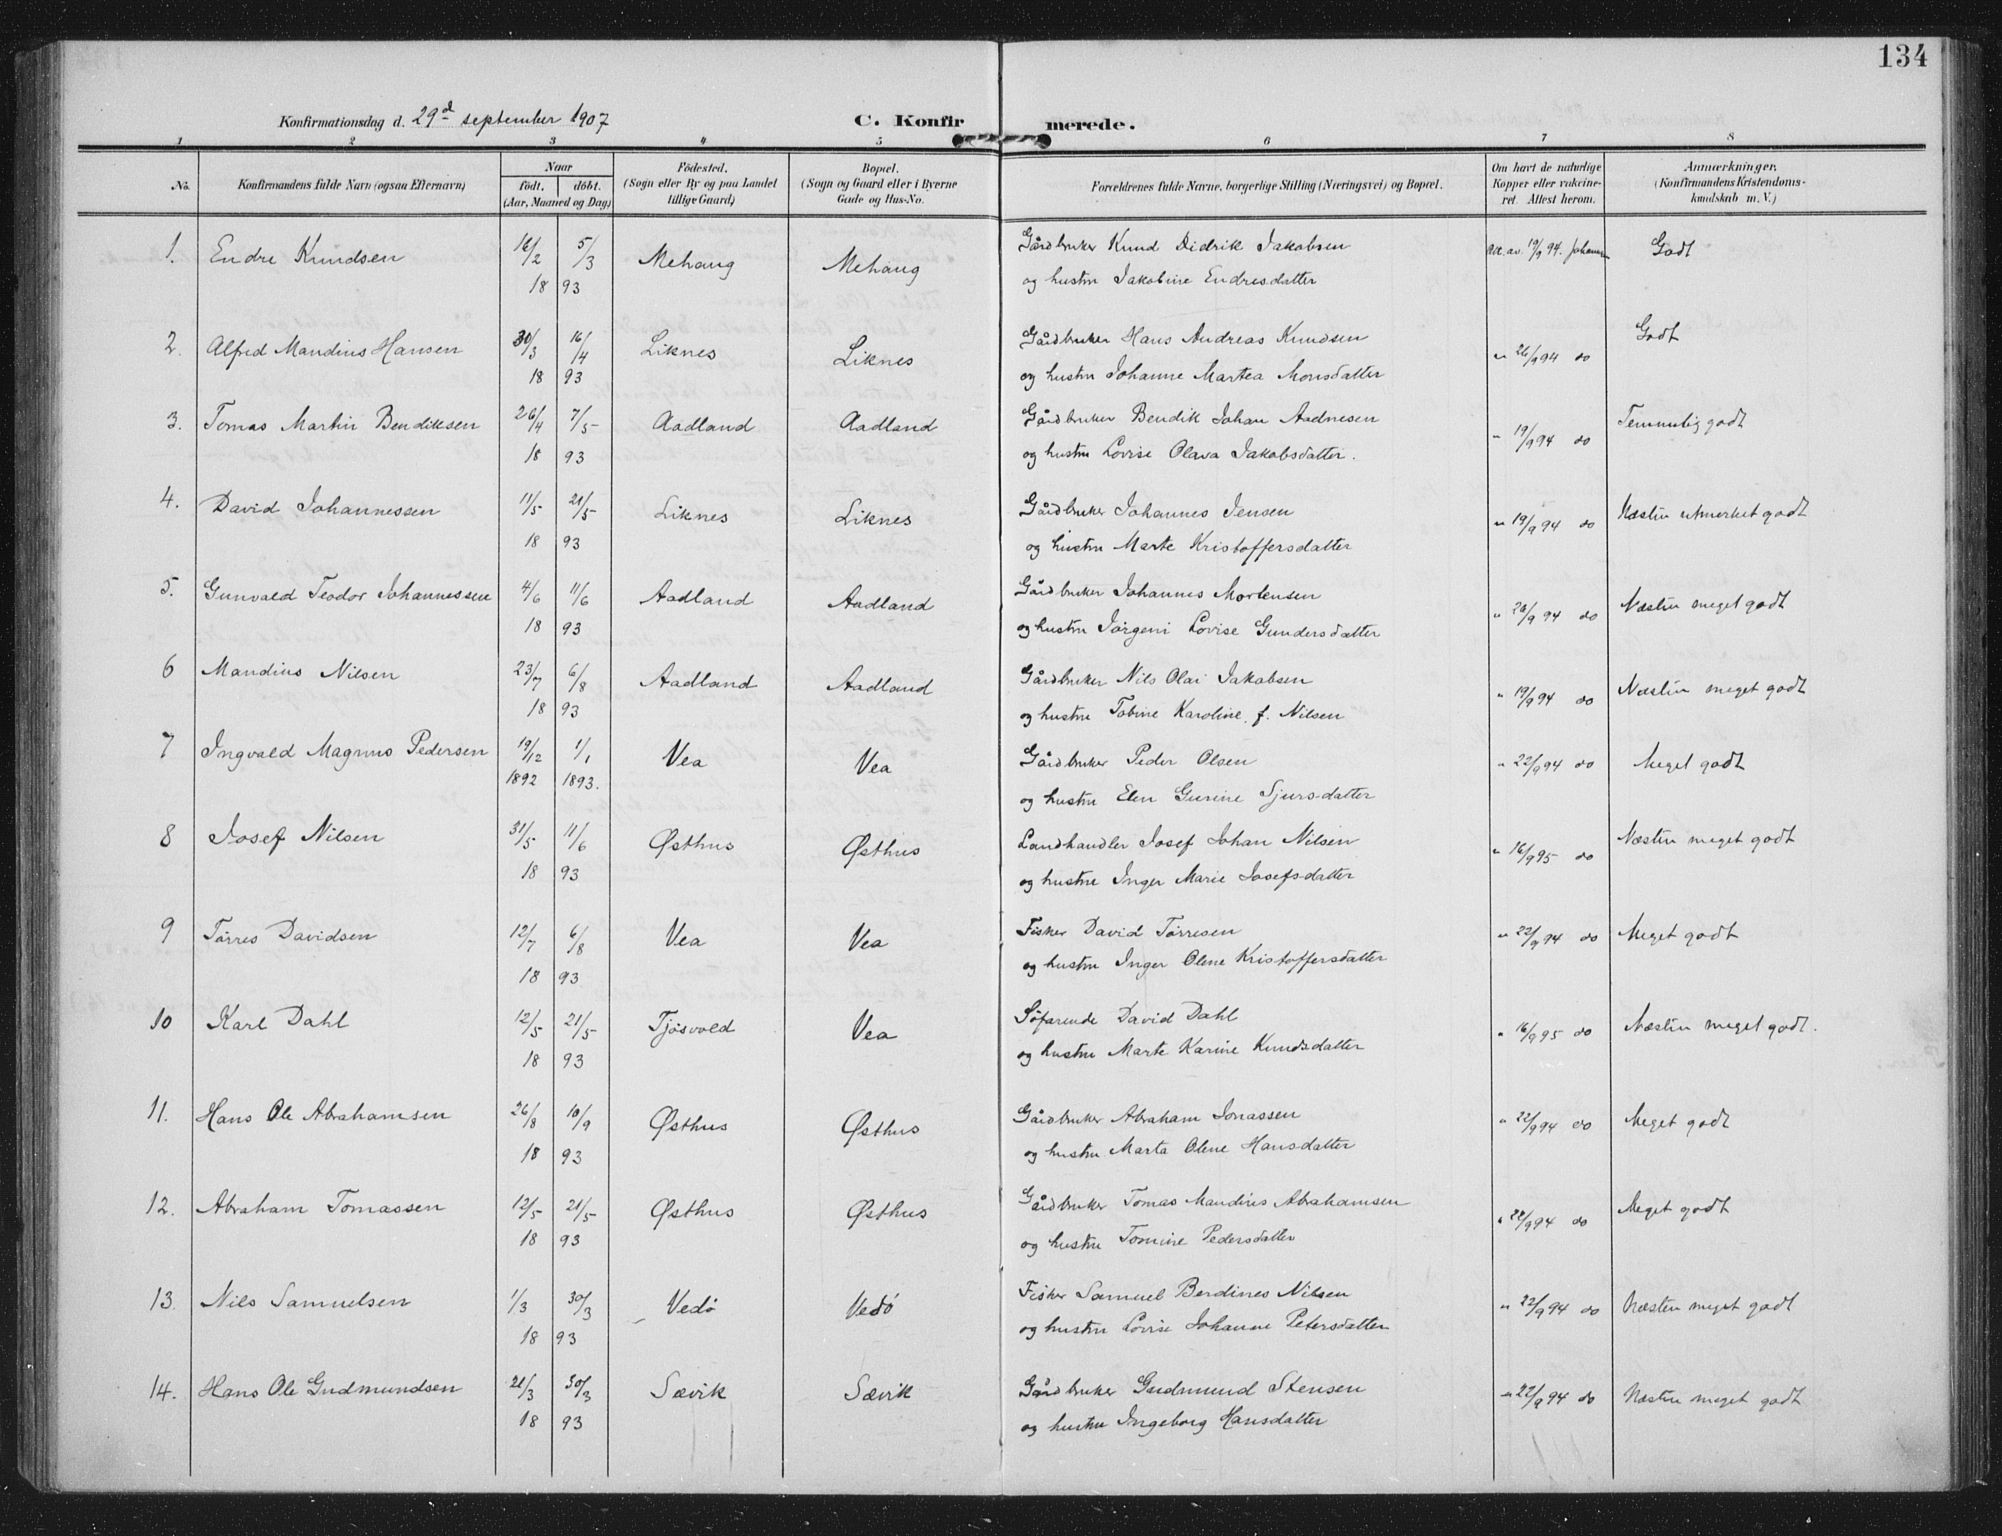 134
Konfirmationsdag d. 29d september 1907
C. Konfirmerede.
1 2 3 4 5 6 7 8
No. | Konfirmandens fulde Navn (ogsaa Efternavn) | Naar født. døbt. (Aar, Maaned og Dag) | Fødested. (Sogn eller By og paa Landet tillige Gaard) | Bopæl. (Sogn og Gaard eller i Byerne Gade og Hus-No. | Forældrenes fulde Navne, borgerlige Stilling (Næringsvei) og Bopæl. | Om havt de naturlige Kopper eller vakcineret. Attest herom. | Anmærkninger. (Konfirmandens Kristendomskundskab m. V.)
1. Endre Knudsen 16/2 5/3 Mehaug Mehaug Gårdbruker Knud Didrik Jakobsen 19/9 94. Godt
18 93 og hustru Jakobine Endresdatter
2. Alfred Mandius Hansen 30/3 16/4 Liknes Liknes Gårdbruker Hans Andreas Knudsen " 26/9 94 do Godt
18 93 og hustru Johanne Martea Monsdatter
3. Tomas Martin Bendiksen 26/4 7/5 Aadland Aadland Gårdbruker Bendik Johan Aadnesen " 19/9 94 do Temmelig godt
18 93 og hustru Lovise Olava Jakobsdatter.
4. David Johannessen 11/5 21/5 Liknes Liknes Gårdbruker Johannes Jensen " 19/9 94 do Næsten utmerket godt
18 93 og hustru Marte Kristoffersdatter
5. Gunvald Teodor Johannessen 4/6 11/6 Aadland Aadland Gårdbruker Johannes Mortensen " 26/9 94 do Næsten meget godt
18 93 og hustru Jørgeni Lovise Gundersdatter
6 Mandius Nilsen 23/7 6/8 Aadland Aadland Gårdbruker Nils Olai Jakobsen " 19/9 94 do Næsten meget godt
18 93 og hustru Tobine Karoline f. Nilsen
7 Ingvald Magnus Pedersen 19/12 1/1 Vea Vea Gårdbruker Peder Olsen " 22/9 94 do Meget godt
1892 1893. og hustru Elen Gurine Sjursdatter
8 Josef Nilsen 31/5 11/6 Østhus Østhus Landhandler Josef Johan Nilsen " 16/9 95 do Næsten meget godt
18 93 og hustru Inger Marie Josefsdatter
9 Tørres Davidsen 12/7 6/8 Vea Vea Fisker David Tørresen " 22/9 94 do Meget godt
18 93 og hustru Inger Olene Kristoffersdatter
10 Karl Dahl 12/5 21/5 Tjøsvold Vea Søfarende David Dahl " 16/9 95 do Næsten meget godt.
18 93 og hustru Marte Karine Knudsdatter
11. Hans Ole Abrahamsen 26/8 10/9 Østhus Østhus Gårdbruker Abraham Jonassen " 22/9 94 do Meget godt
18 93 og hustru Marta Olene Hansdatter
12. Abraham Tomassen 12/5 21/5 Østhus Østhus Gårdbruker Tomas Mandius Abrahamsen " 22/9 94 do Meget godt
18 93 og hustru Tomine Pedersdatter
13. Nils Samuelsen 1/3 30/3 Vedø Vedø Fisker Samuel Berdines Nilsen " 22/9 94 do Næsten meget godt
18 93 og hustru Lovise Johanne Petersdatter
14. Hans Ole Gudmundsen 21/3 30/3 Sævik Sævik Gårdbruker Gudmund Stensen " 22/9 94 do Næsten meget godt
18 93 og hustru Ingeborg Hansdatter